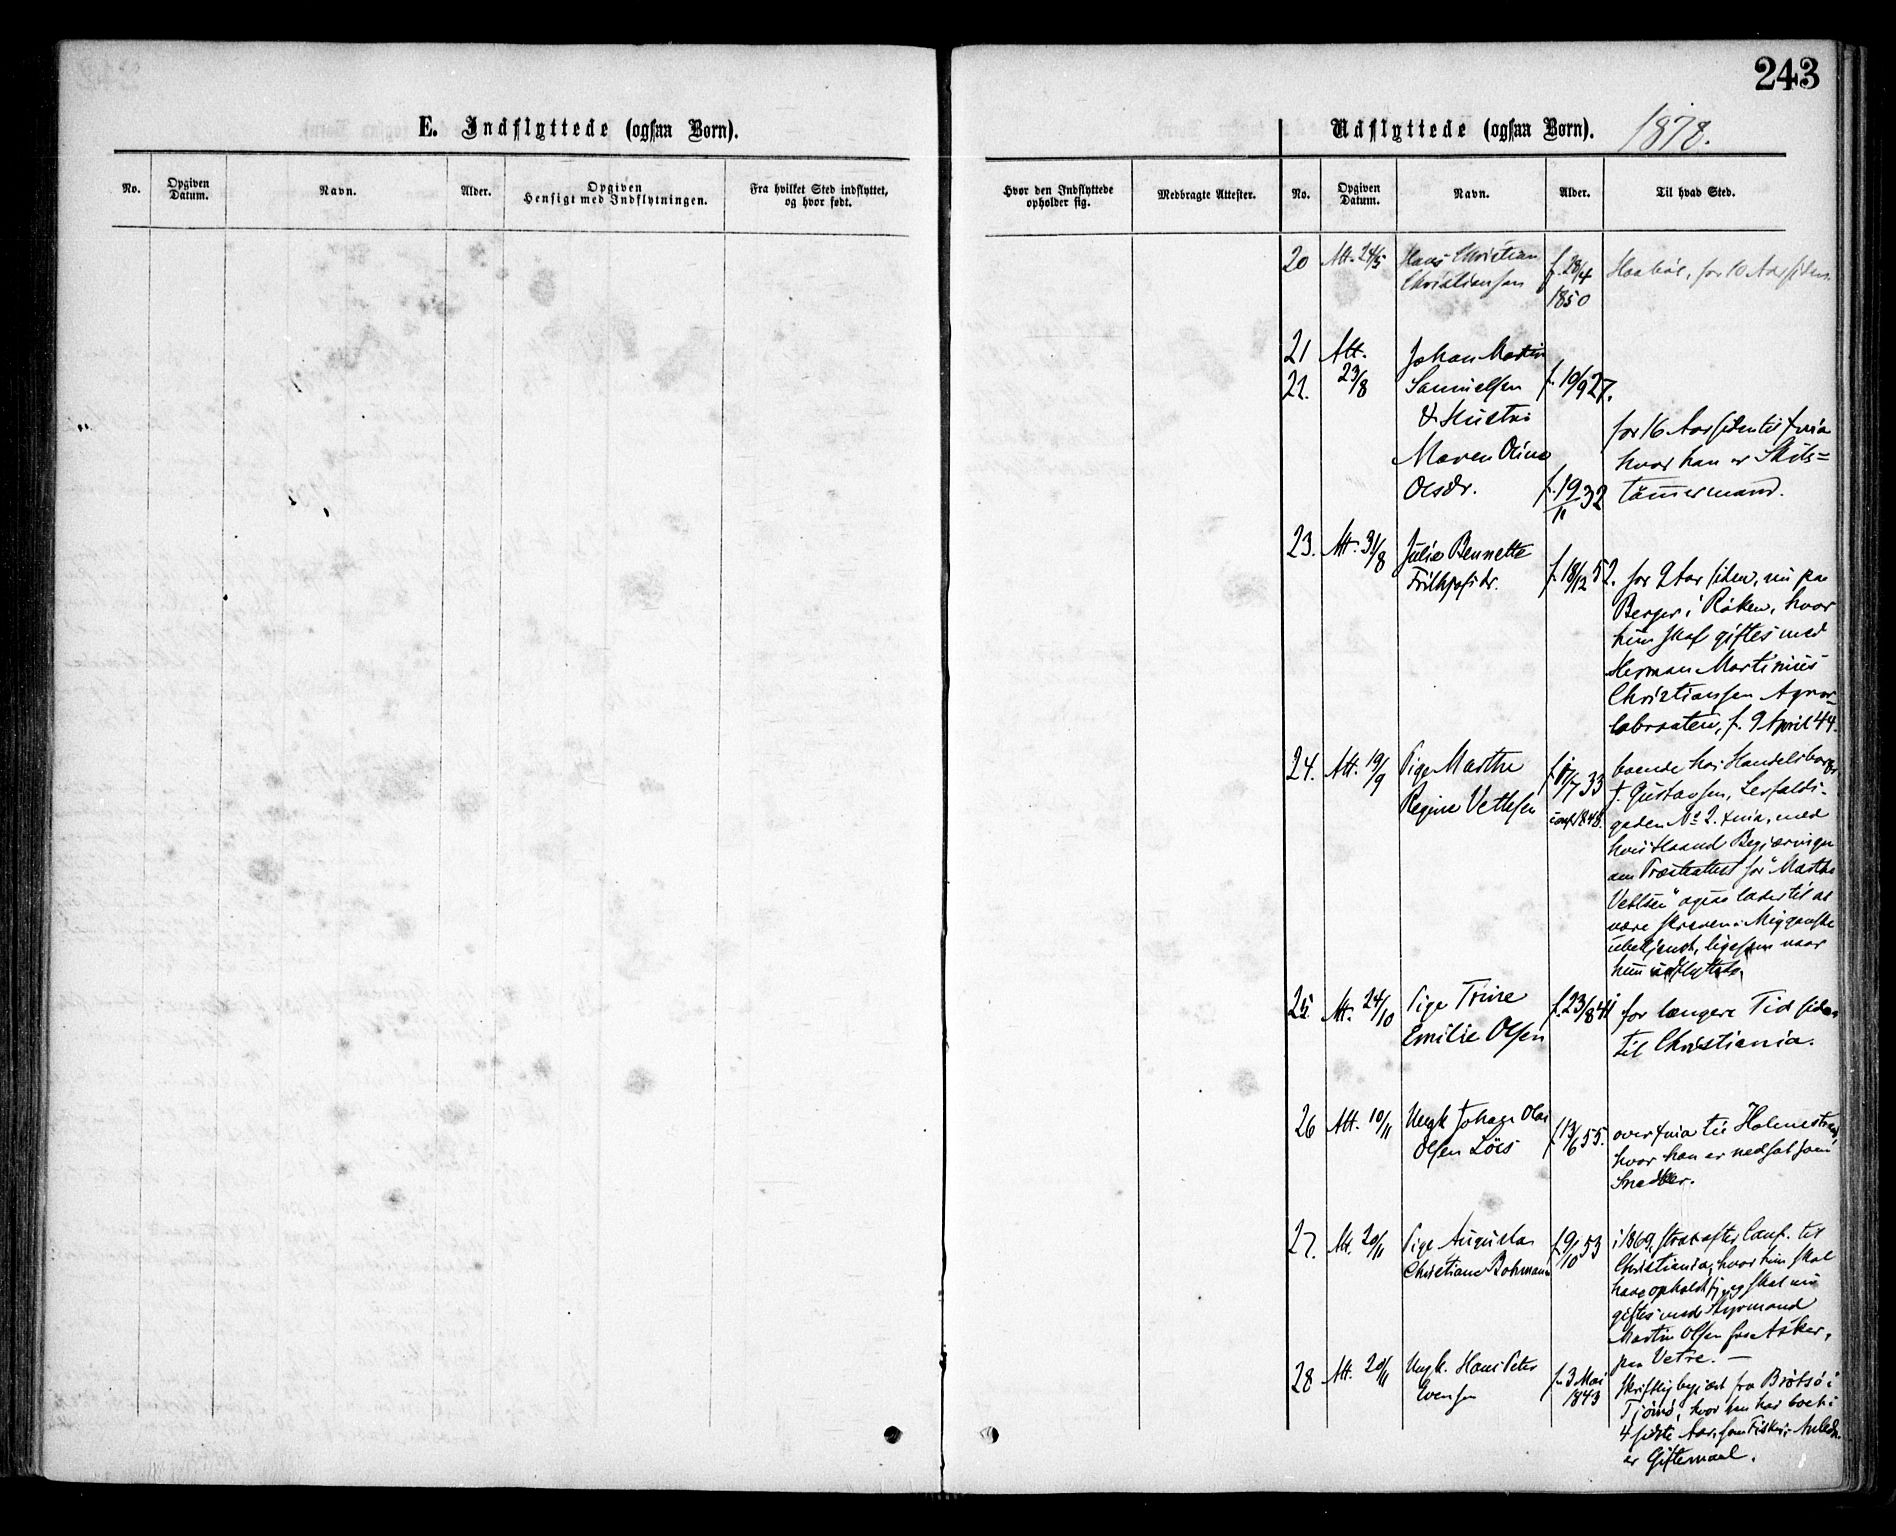 243
E. Indflyttede (ogsaa Børn).
Udflyttede (ogsaa Børn). 1878.
No.
Opgiven Datum.
Navn.
Alder.
Opgiven Hensigt med Indflytningen.
Fra hvilket Sted indflyttet, og hvor født.
Hvor den Indflyttede opholder sig.
Medbragte Attester.
No.
Opgiven Datum.
Navn.
Alder.
Til hvad Sted.
20 Att. 24/5 Hans Christian f. 28/4 for 10 Aar siden
Christiansen 1850
21 Att. Johan Martin
22. 23/8 Samuelsen f. 10/9 27.
& Hustru for 16 Aar siden til Xnia
Maren Oline hvor han er Skibs=
Olsdr. f. 19/11 32 tømmermand.
23. Att. 31/8 Julie Bennette
Frithjofsdr. f. 18/12 52. for 9 Aar siden, nu paa
Berger i Røken, hvor
hun skal giftes med
Herman Martinius
Christiansen
f. 9 April 44.
24. Att. 19/9 Pige Marthe f. 17/7 33 boende hos Handelsborger
Regine Vethesen conf. 1848. Gustavsen,
gaden No 2. Xnia, med
hvis Haand Begjæringen
om Præsteattest for "Marthe
" ogsaa lader til at
være skreven. Mig ganske
ubekjendt, ligesom naar
hun udflyttede.
25. Att. 24/10 Pige Trine f. 23/8 41 for længere Tid siden
Emilie Olsen til Christiania.
26 Att. 10/11 Ungk Johan Olai f. 13/6 55. over Xnia til Holmestrand,
Olsen Løes hvor han er nedsat som
Snedker.
27. Att. 20/11 Pige Augusta f. 9/10 53 i 1869, strax efter Conf. til
Christiane Bohmann Christiania, hvor hun skal
have opholdt sig, og skal nu
giftes med Styrmand
Martin Olsen fra Asker,
paa Vetre. —
28 Att. 20/11 Ungk. Hans Peter f. 3 Mai Skriftlig begjært fra Brøtsø i
Evensen 1843 Tjømø, hvor han har boet i
4 sidste Aar, som Fisker. Anledn.
er Giftemaal.